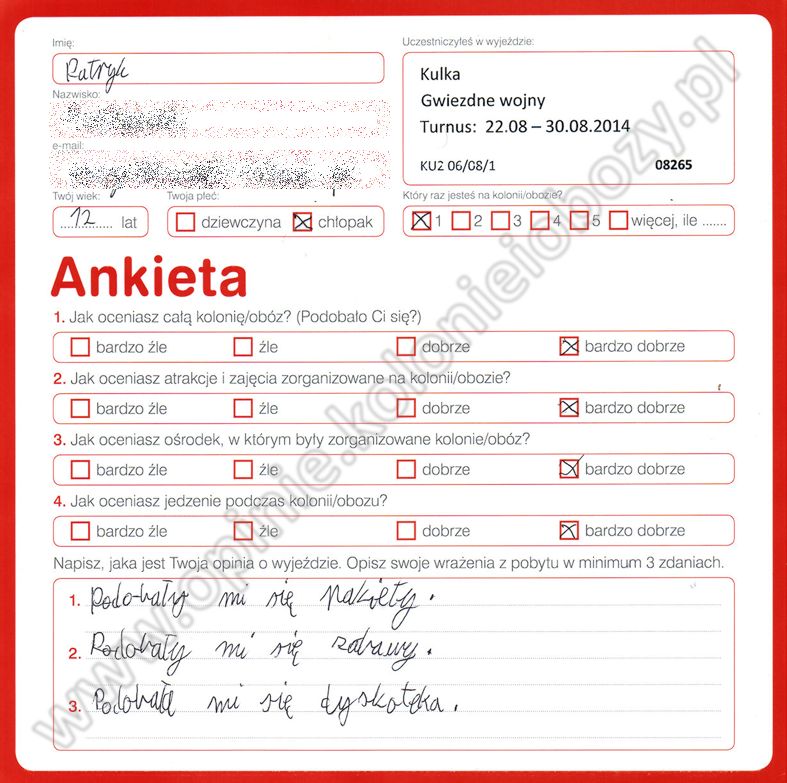 Imię:
Patryk
Nazwisko:
e-mail:
Twój wiek:
12 lat
Twoja płeć:
dziewczyna chłopak
Uczestniczyłeś w wyjeździe:
Kulka
Gwiezdne wojny
Turnus: 22.08 – 30.08.2014
KU2 06/08/1 08265
Który raz jesteś na kolonii/obozie?
1 2 3 4 5 więcej, ile .......
Ankieta
1. Jak oceniasz całą kolonię/obóz? (Podobało Ci się?)
bardzo źle źle dobrze bardzo dobrze
2. Jak oceniasz atrakcje i zajęcia zorganizowane na kolonii/obozie?
bardzo źle źle dobrze bardzo dobrze
3. Jak oceniasz ośrodek, w którym były zorganizowane kolonie/obóz?
bardzo źle źle dobrze bardzo dobrze
4. Jak oceniasz jedzenie podczas kolonii/obozu?
bardzo źle źle dobrze bardzo dobrze
Napisz, jaka jest Twoja opinia o wyjeździe. Opisz swoje wrażenia z pobytu w minimum 3 zdaniach.
1. Podobały mi się pakiety.
2. Podobały mi się zabawy.
3. Podobałą mi się dyskoteka.
www.opinie.kolonieiobozy.pl